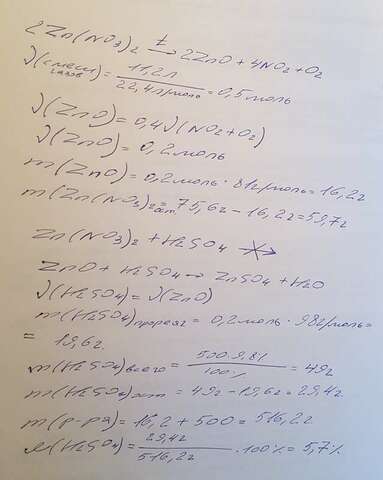 2Zn(NO3)2 t→ 2ZnO + 4NO2 + O2
ν(смеси газов) = 11,2л / 22,4л/моль = 0,5моль
ν(ZnO) = 0,4ν(NO2+O2)
ν(ZnO) = 0,2моль
m(ZnO) = 0,2моль · 81г/моль = 16,2г
m(Zn(NO3)2ост. = 75,6г - 16,2г = 59,7г
Zn(NO3)2 + H2SO4 ↛
ZnO + H2SO4 → ZnSO4 + H2O
ν(H2SO4) = ν(ZnO)
m(H2SO4)прореаг = 0,2моль · 98г/моль =
= 19,6г
m(H2SO4)всего = 500 · 9,8% / 100% = 49г
m(H2SO4)ост = 49г - 19,6г = 29,4г
m(р-ра) = 16,2 + 500 = 516,2г
ω(H2SO4) = 29,4г / 516,2г · 100% = 5,7%